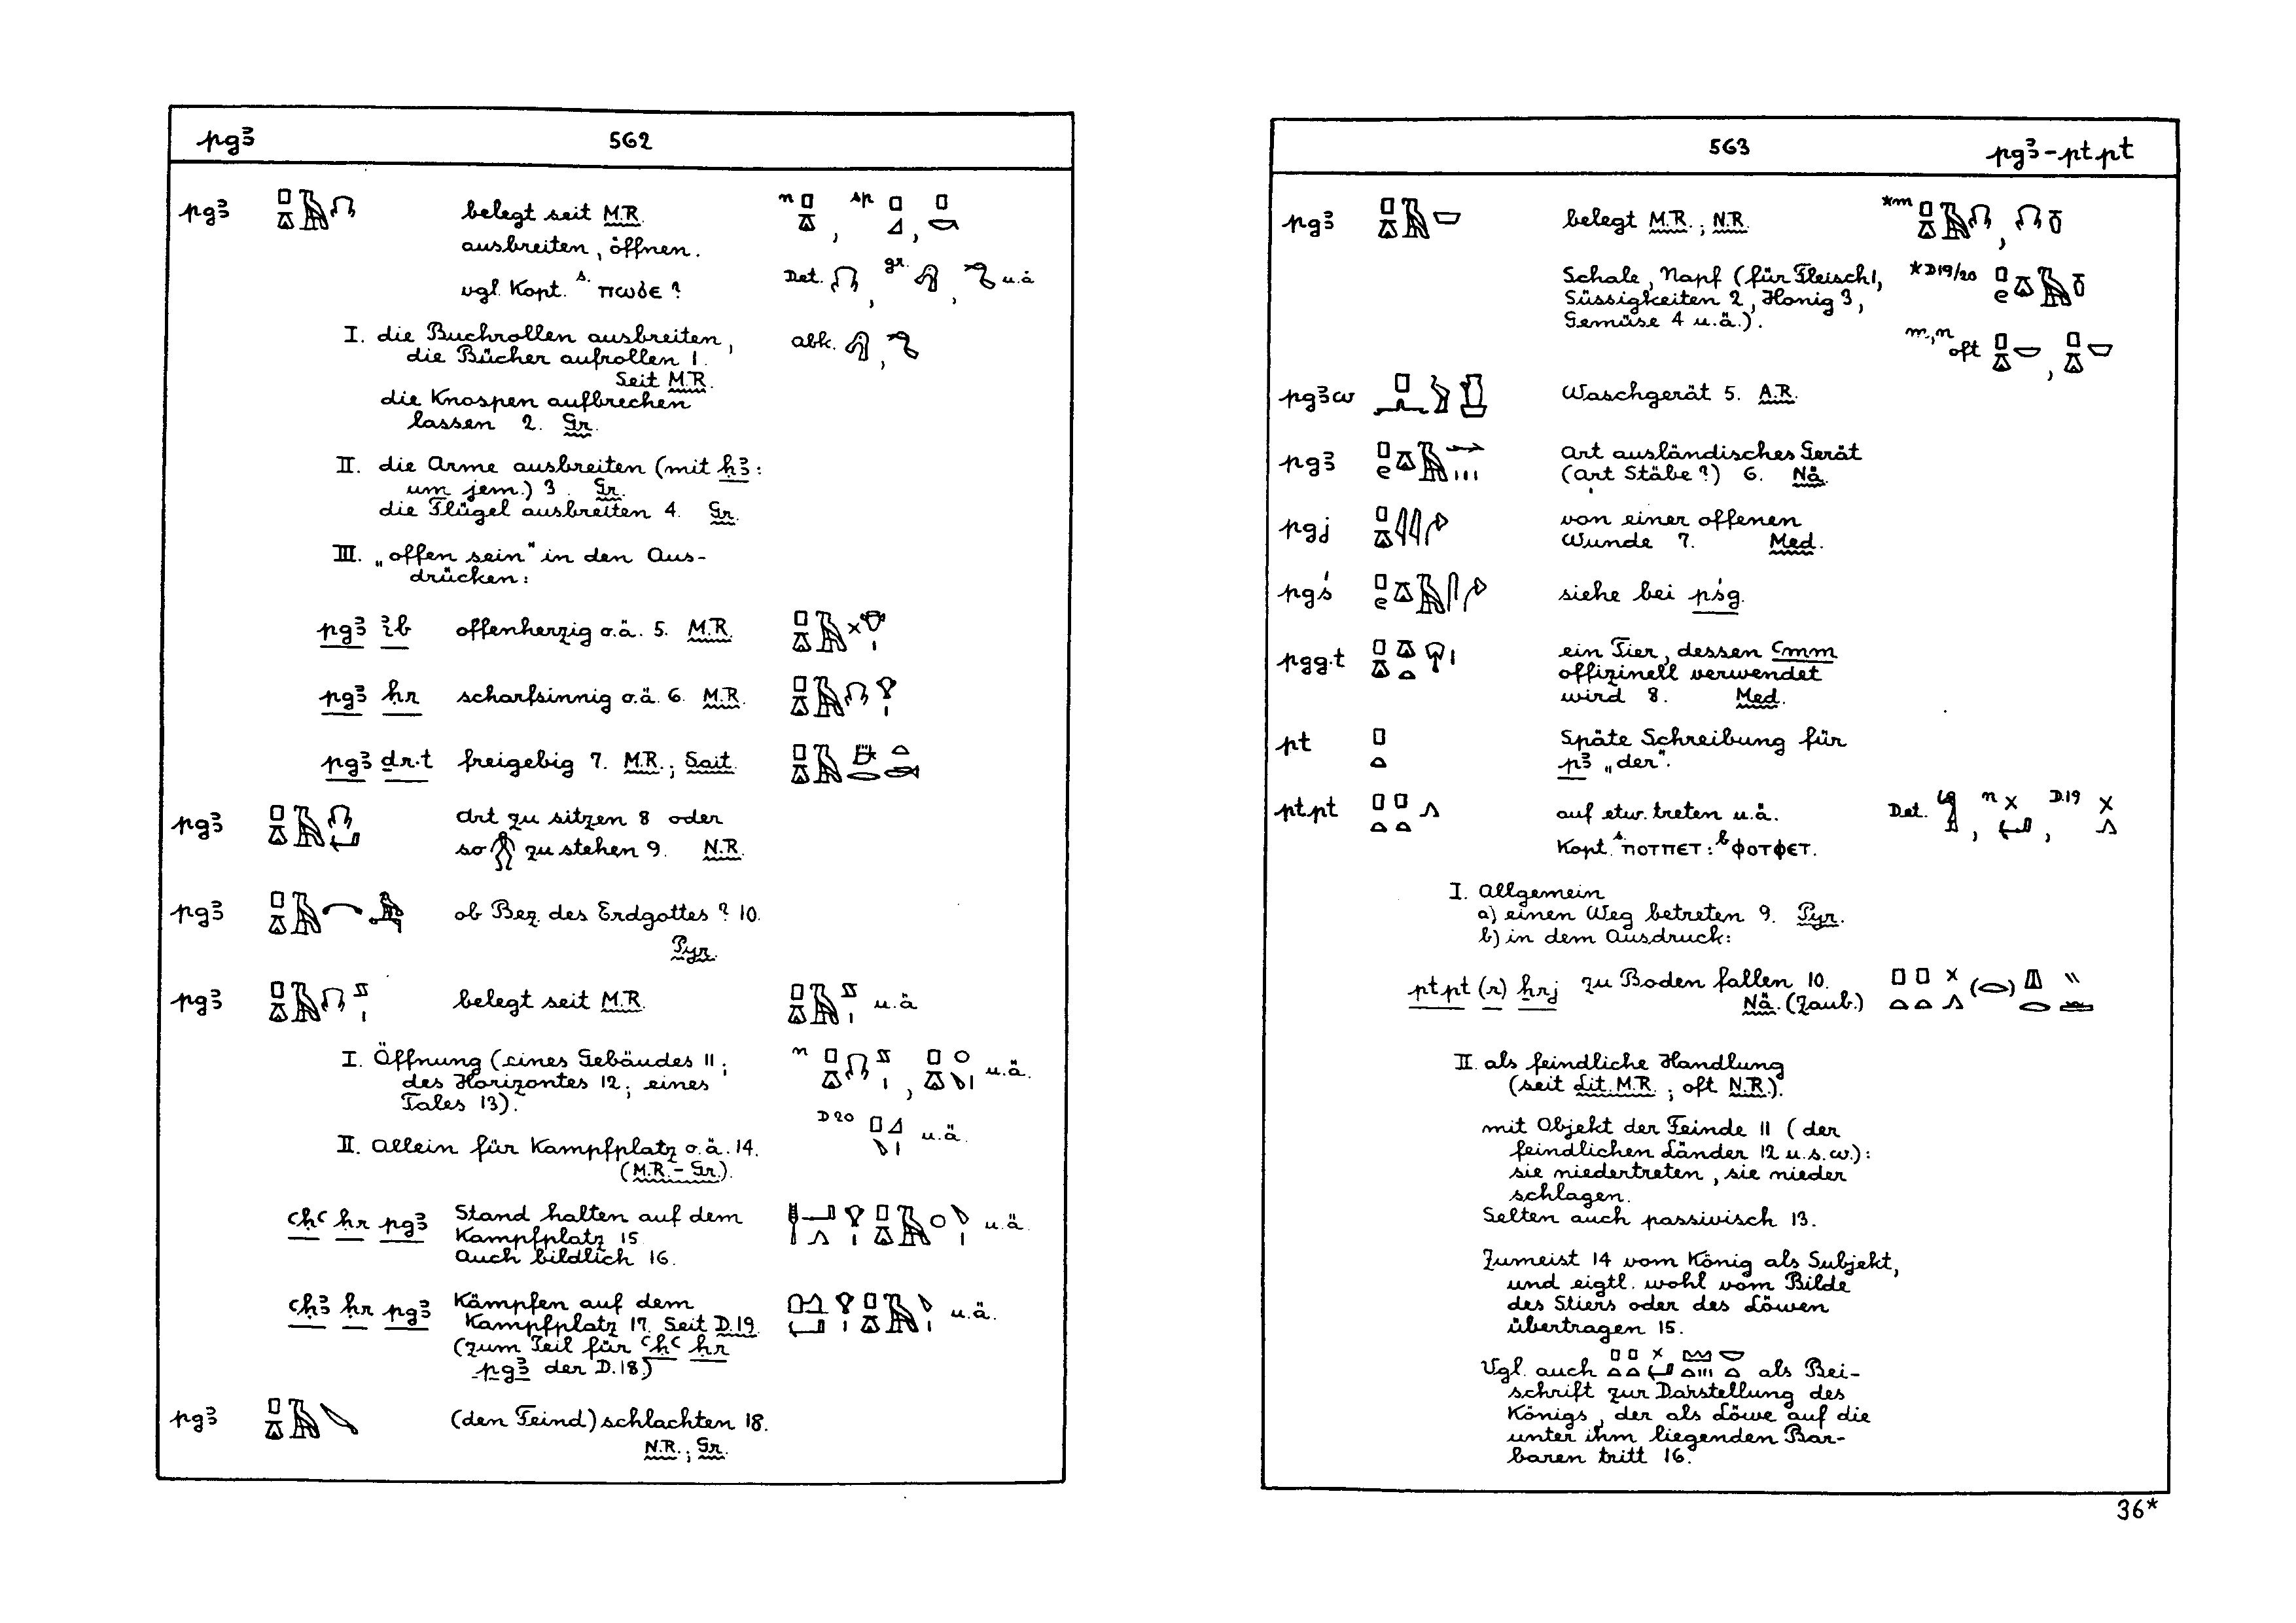 pgꜣ 562
pgꜣ belegt seit M.R.
ausbreiten, öffnen.
vgl. Kopt. s. ⲡⲱϭⲉ ?
n , sp ,
Det. , gr. , u.ä
abk. ,
I. die Buchrollen ausbreiten,
die Bücher aufrollen 1.
Seit M.R.
die Knospen aufbrechen
lassen 2. Gr.
II. die Arme ausbreiten (mit ḥꜣ:
um jem.) 3. Gr.
die Flügel ausbreiten 4. Gr.
III. „offen sein" in den Aus-
drücken:
pgꜣ ı͗b offenherzig o.ä. 5. M.R.
pgꜣ ḥr scharfsinnig o.ä. 6. M.R.
pgꜣ ḏr.t freigebig 7. M.R.; Sait.
pgꜣ Art zu sitzen 8 oder
so zu stehen 9. N.R.
pgꜣ ob Bez. des Erdgottes ? 10.
Pyr.
pgꜣ belegt seit M.R. u.ä
I. Öffnung (eines Gebäudes 11;
des Horizontes 12; eines
Tales 13).
n , u.ä.
D 20 u.ä.
II. Allein für Kampfplatz o.ä. 14.
(M.R. - Gr.).
ꜥḥꜥ ḥr pgꜣ Stand halten auf dem
Kampfplatz 15
Auch bildlich 16. u.ä.
ꜥḥꜣ ḥr pgꜣ Kämpfen auf dem
Kampfplatz 17. Seit D.19.
(zum Teil für ꜥḥꜥ ḥr
pgꜣ der D.18.) u.ä.
pgꜣ (den Feind) schlachten 18.
N.R.; Gr.
563 pgꜣ - ptpt
pgꜣ belegt M.R.; N.R.
Schale, Napf (für Fleisch 1,
Süssigkeiten 2, Honig 3,
Gemüse 4 u.ä.).
*m ,
*D19/20
m,n oft ,
pgꜣw Waschgerät 5. A.R.
pgꜣ Art ausländisches Gerät
(Art Stäbe?) 6. Nä.
pgj von einer offenen
Wunde 7. Med.
pgś siehe bei pśg.
pgg.t ein Tier, dessen ꜥmm
offizinell verwendet
wird 8. Med.
pt Späte Schreibung für
pꜣ „der".
ptpt auf etw. treten u.ä.
Kopt. s. ⲡⲟⲧⲡⲉⲧ: b ⲫⲟⲧⲫⲉⲧ.
Det. , n , D.19
I. Allgemein
a) einen Weg betreten 9. Pyr.
b) in dem Ausdruck:
ptpt (r) ẖrj zu Boden fallen 10.
Nä. (Zaub.)
II. als feindliche Handlung
(seit Lit. M.R.; oft N.R.).
mit Objekt der Feinde 11 (der
feindlichen Länder 12 u.s.w.):
sie niedertreten, sie nieder
schlagen.
Selten auch passivisch 13.
Zumeist 14 vom König als Subjekt,
und eigtl. wohl vom Bilde
des Stiers oder des Löwen
übertragen 15.
Vgl. auch als Bei-
schrift zur Darstellung des
Königs, der als Löwe auf die
unter ihm liegenden Bar-
baren tritt 16.
36*